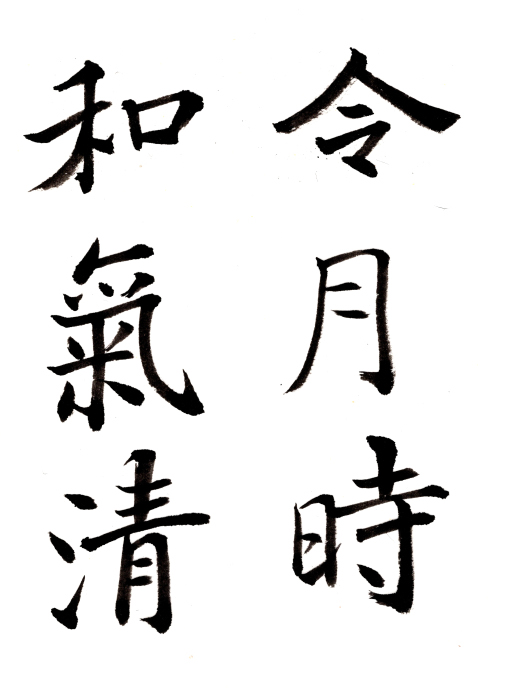 令月時
和氣清